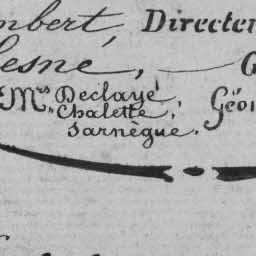 mbert, Directe
esné, — G
Mrs Declayé, Géo
Chalette,
Sarnègue.